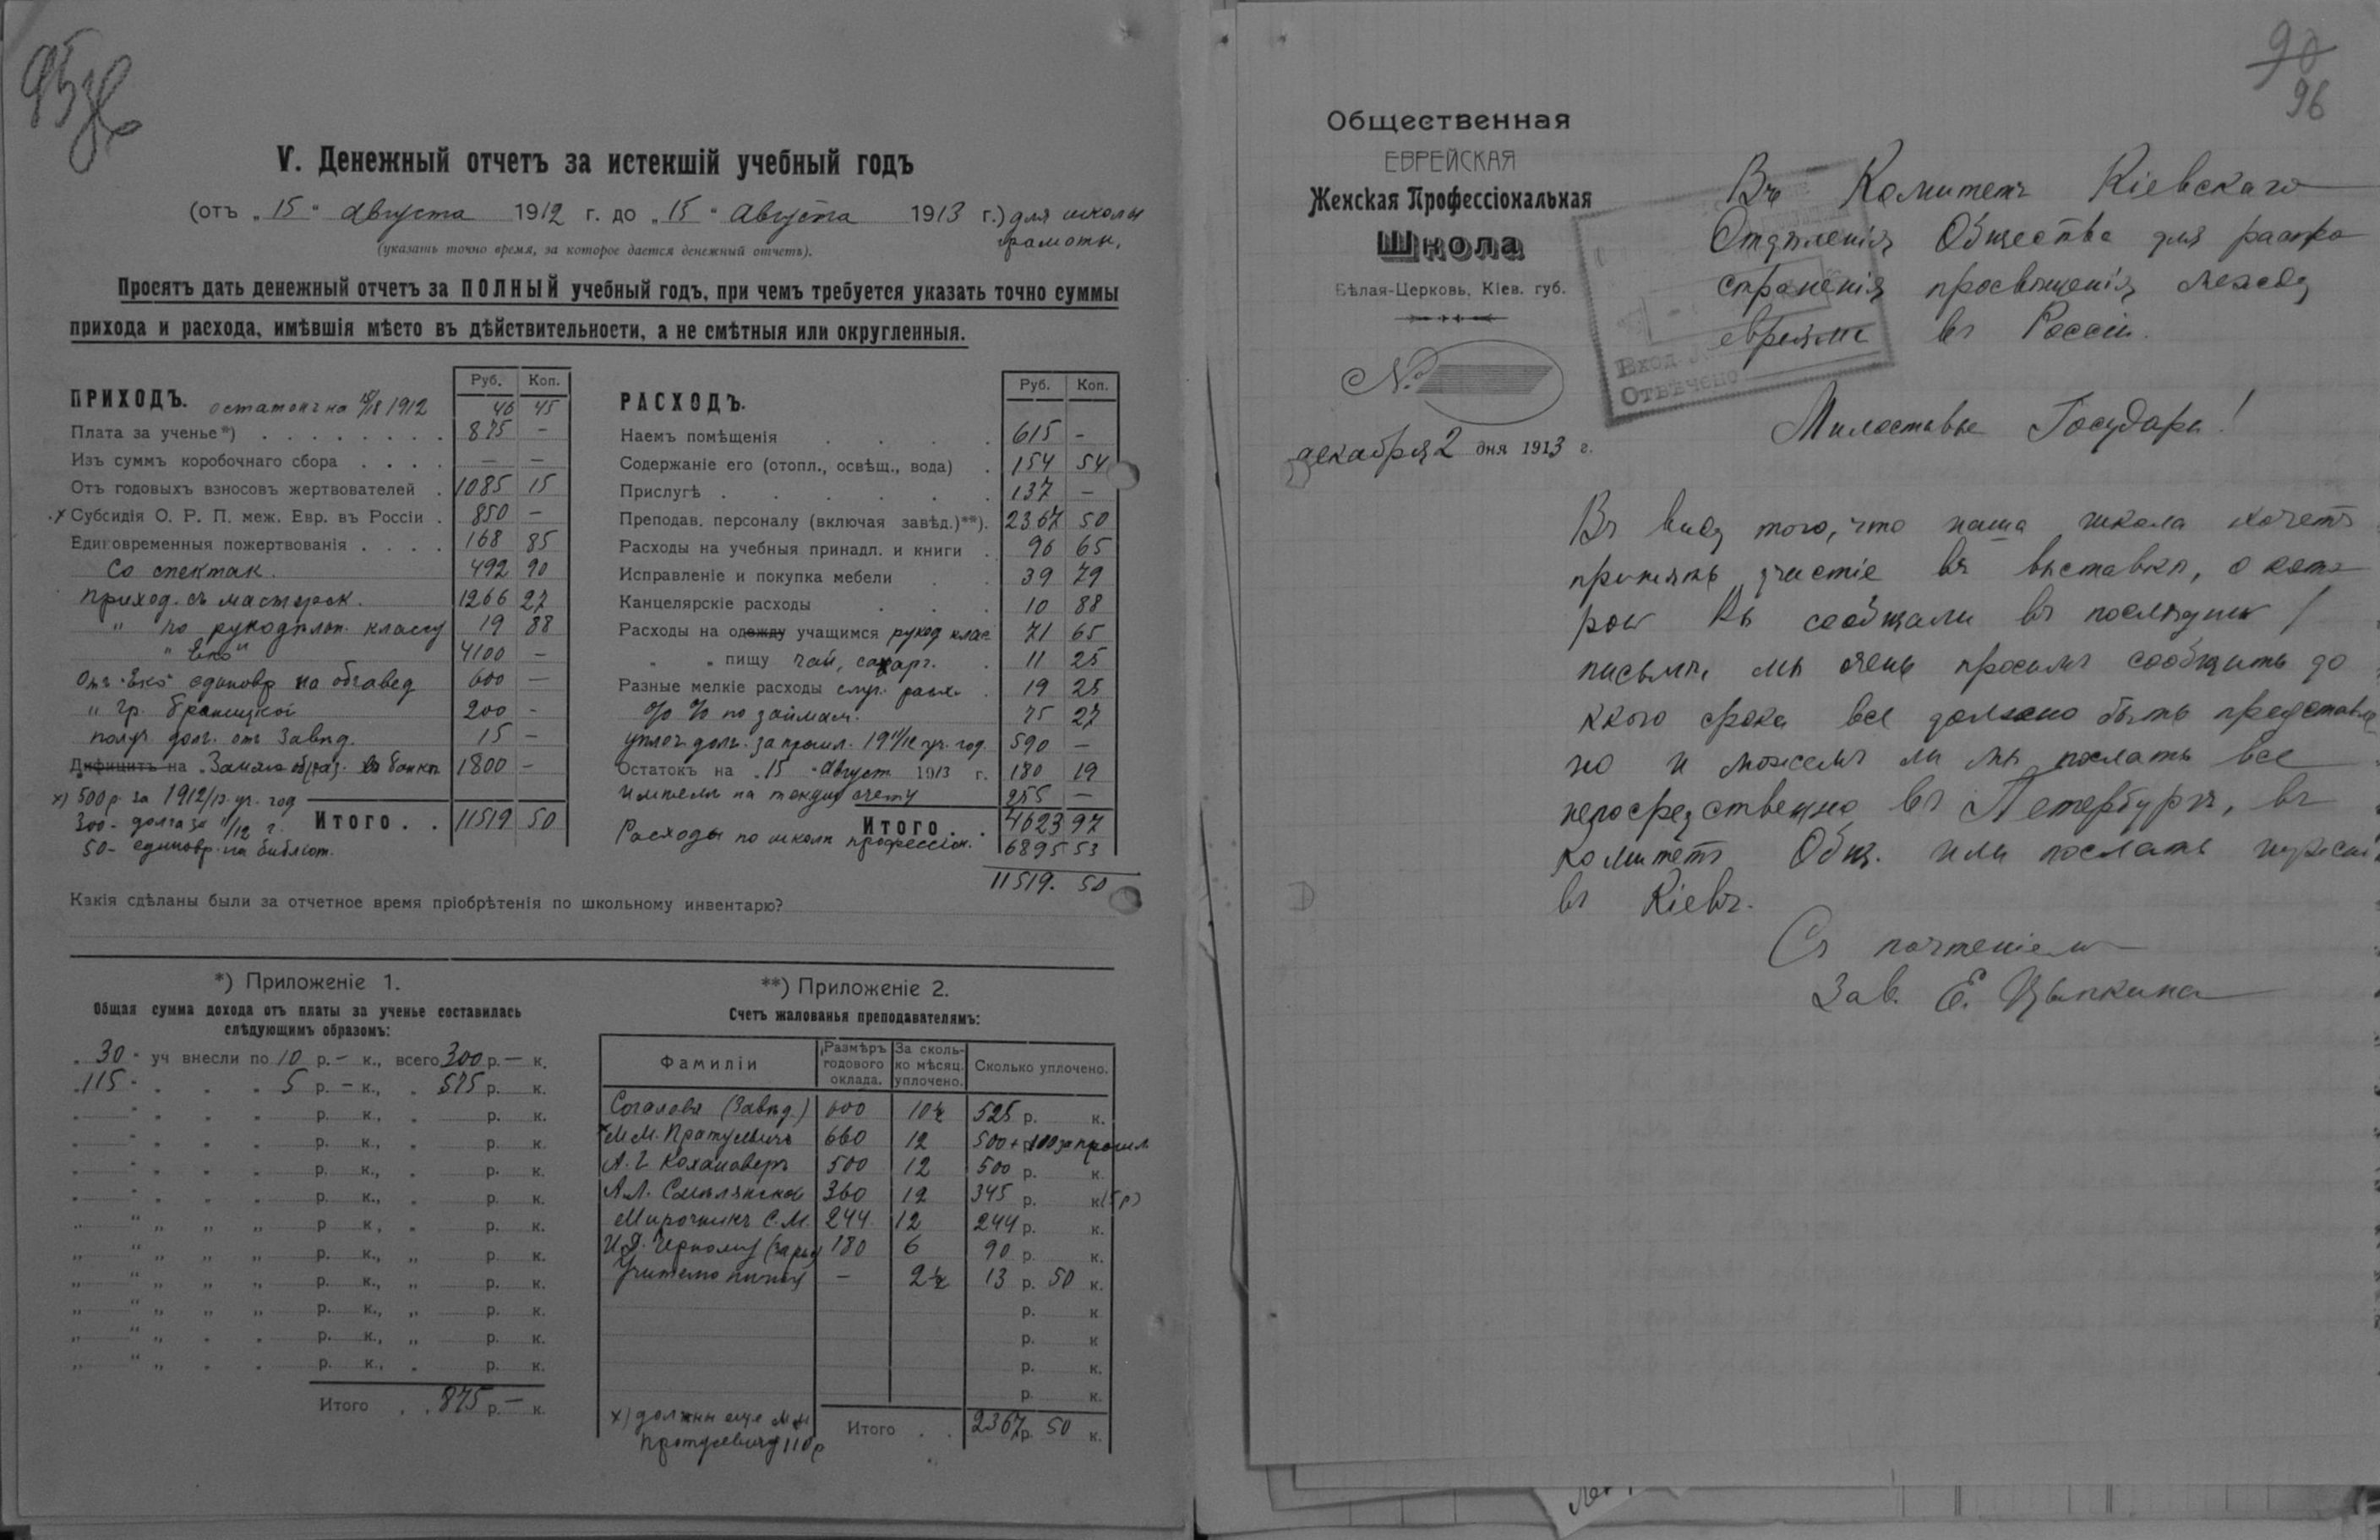 95 об
V. Денежный отчетъ за истекшій учебный годъ
(отъ „15“ августа 1912 г. до „15“ августа 1913 г.) для школы
грамоты.
(указать точно время, за которое дается денежный отчетъ).
Просятъ дать денежный отчетъ за ПОЛНЫЙ учебный годъ, при чемъ требуется указать точно суммы
прихода и расхода, имѣвшія мѣсто въ дѣйствительности, а не смѣтныя или округленныя.
Руб. Коп.
ПРИХОДЪ. остатокъ на 15/VIII 1912 46 45
Плата за ученье*) 875 –
Изъ суммъ коробочнаго сбора – –
Отъ годовыхъ взносовъ жертвователей 1085 15
x Субсидія О. Р. П. меж. Евр. въ Россіи 850 –
Единовременныя пожертвованія 168 85
Со спектак. 492 90
приход. съ мастерск. 1266 27
" по рукодѣльн. классу 19 88
" Еко" 4100 –
Отъ „Еко“ единовр на обзавед 600 –
" гр. Браницкой 200 –
получ. долг. отъ Завѣд. 15 –
Дифицитъ на 1800 –
x) 500 р. за 1912/13 уч. год
300 - долга за 11/12 г. Итого . . 11519 50
50 - единовр. на библіот.
Руб. Коп.
РАСХОДЪ.
Наемъ помѣщенія 615 –
Содержаніе его (отопл., освѣщ., вода) 154 54
Прислугѣ 137 –
Преподав. персоналу (включая завѣд.)**). 2367 50
Расходы на учебныя принадл. и книги 96 65
Исправленіе и покупка мебели 39 79
Канцелярскіе расходы 10 88
Расходы на одежду учащимся рукод клас 71 65
„ „ пищу чай, сахаръ. 11 25
Разные мелкіе расходы случ. расх. 19 25
% % по займам. 75 27
уплоч долг. за прошл. 1911/12 уч. год. 590 –
Остатокъ на „15“ Август 1913 г. 180 19
имѣемъ на текущ счету 255 –
Итого . . 4623 97
Расходы по школѣ профессіон. 6895 53
11519. 50
Какія сдѣланы были за отчетное время пріобрѣтенія по школьному инвентарю?
*) Приложеніе 1.
Общая сумма дохода отъ платы за ученье составилась
слѣдующимъ образомъ:
„30“ уч внесли по 10 р. – к., всего 300 р. – к.
„115“ „ „ „ 5 р. – к., „ 575 р. к.
„ “ „ „ „ р. к., „ р. к.
„ “ „ „ „ р. к., „ р. к.
„ “ „ „ „ р. к., „ р. к.
„ “ „ „ „ р. к., „ р. к.
„ “ „ „ „ р к, „ р. к.
„ “ „ „ „ р. к., „ р. к.
„ “ „ „ „ р. к., „ р. к.
„ “ „ „ „ р. к., „ р. к.
„ “ „ „ „ р. к., „ р. к.
„ “ „ „ „ р. к., „ р. к.
Итого . . 875 р. – к.
**) Приложеніе 2.
Счетъ жалованья преподавателямъ:
Фамиліи
Размѣръ годового оклада.
За сколько мѣсяц. уплочено.
Сколько уплочено.
(Завѣд.) 600 10½ 525 р. к.
x М М. 660 12 500 + 100 за прошл
500 12 500 р. к.
А.Л. Смѣлянская 360 12 345 р. к (5 р)
Мирочникъ С.М. 244. 12 244 р. к.
180 6 90 р. к.
Учителю пѣнія – 2½ 13 р. 50 к.
р. к
р. к
р. к.
р. к.
x) должны еще М М
110 р
Итого . . 2367 р. 50 к.
90
96
Общественная
ЕВРЕЙСКАЯ
Женская Профессіональная
Школа
Бѣлая-Церковь, Кіев. губ.
№
декабря 2 дня 1913 г.
Вход.
Отвѣчено
Въ Комитетъ Кіевскаго
Отдѣленія Общества для распро
страненія просвѣщенія между
евреями въ Россіи.
Милостивые Государи!
Въ виду того, что наша школа хочетъ
принять участіе въ выставкѣ, о кото
рой Вы сообщали въ послѣднемъ
письмѣ, мы очень просимъ сообщить до
какого срока все должно быть представле
но и можемъ ли мы послать все
непосредственно въ Петербургъ, въ
комитетъ Общ. или послать
въ Кіевъ.
Съ почтеніемъ
Зав. Е. Цыпкина